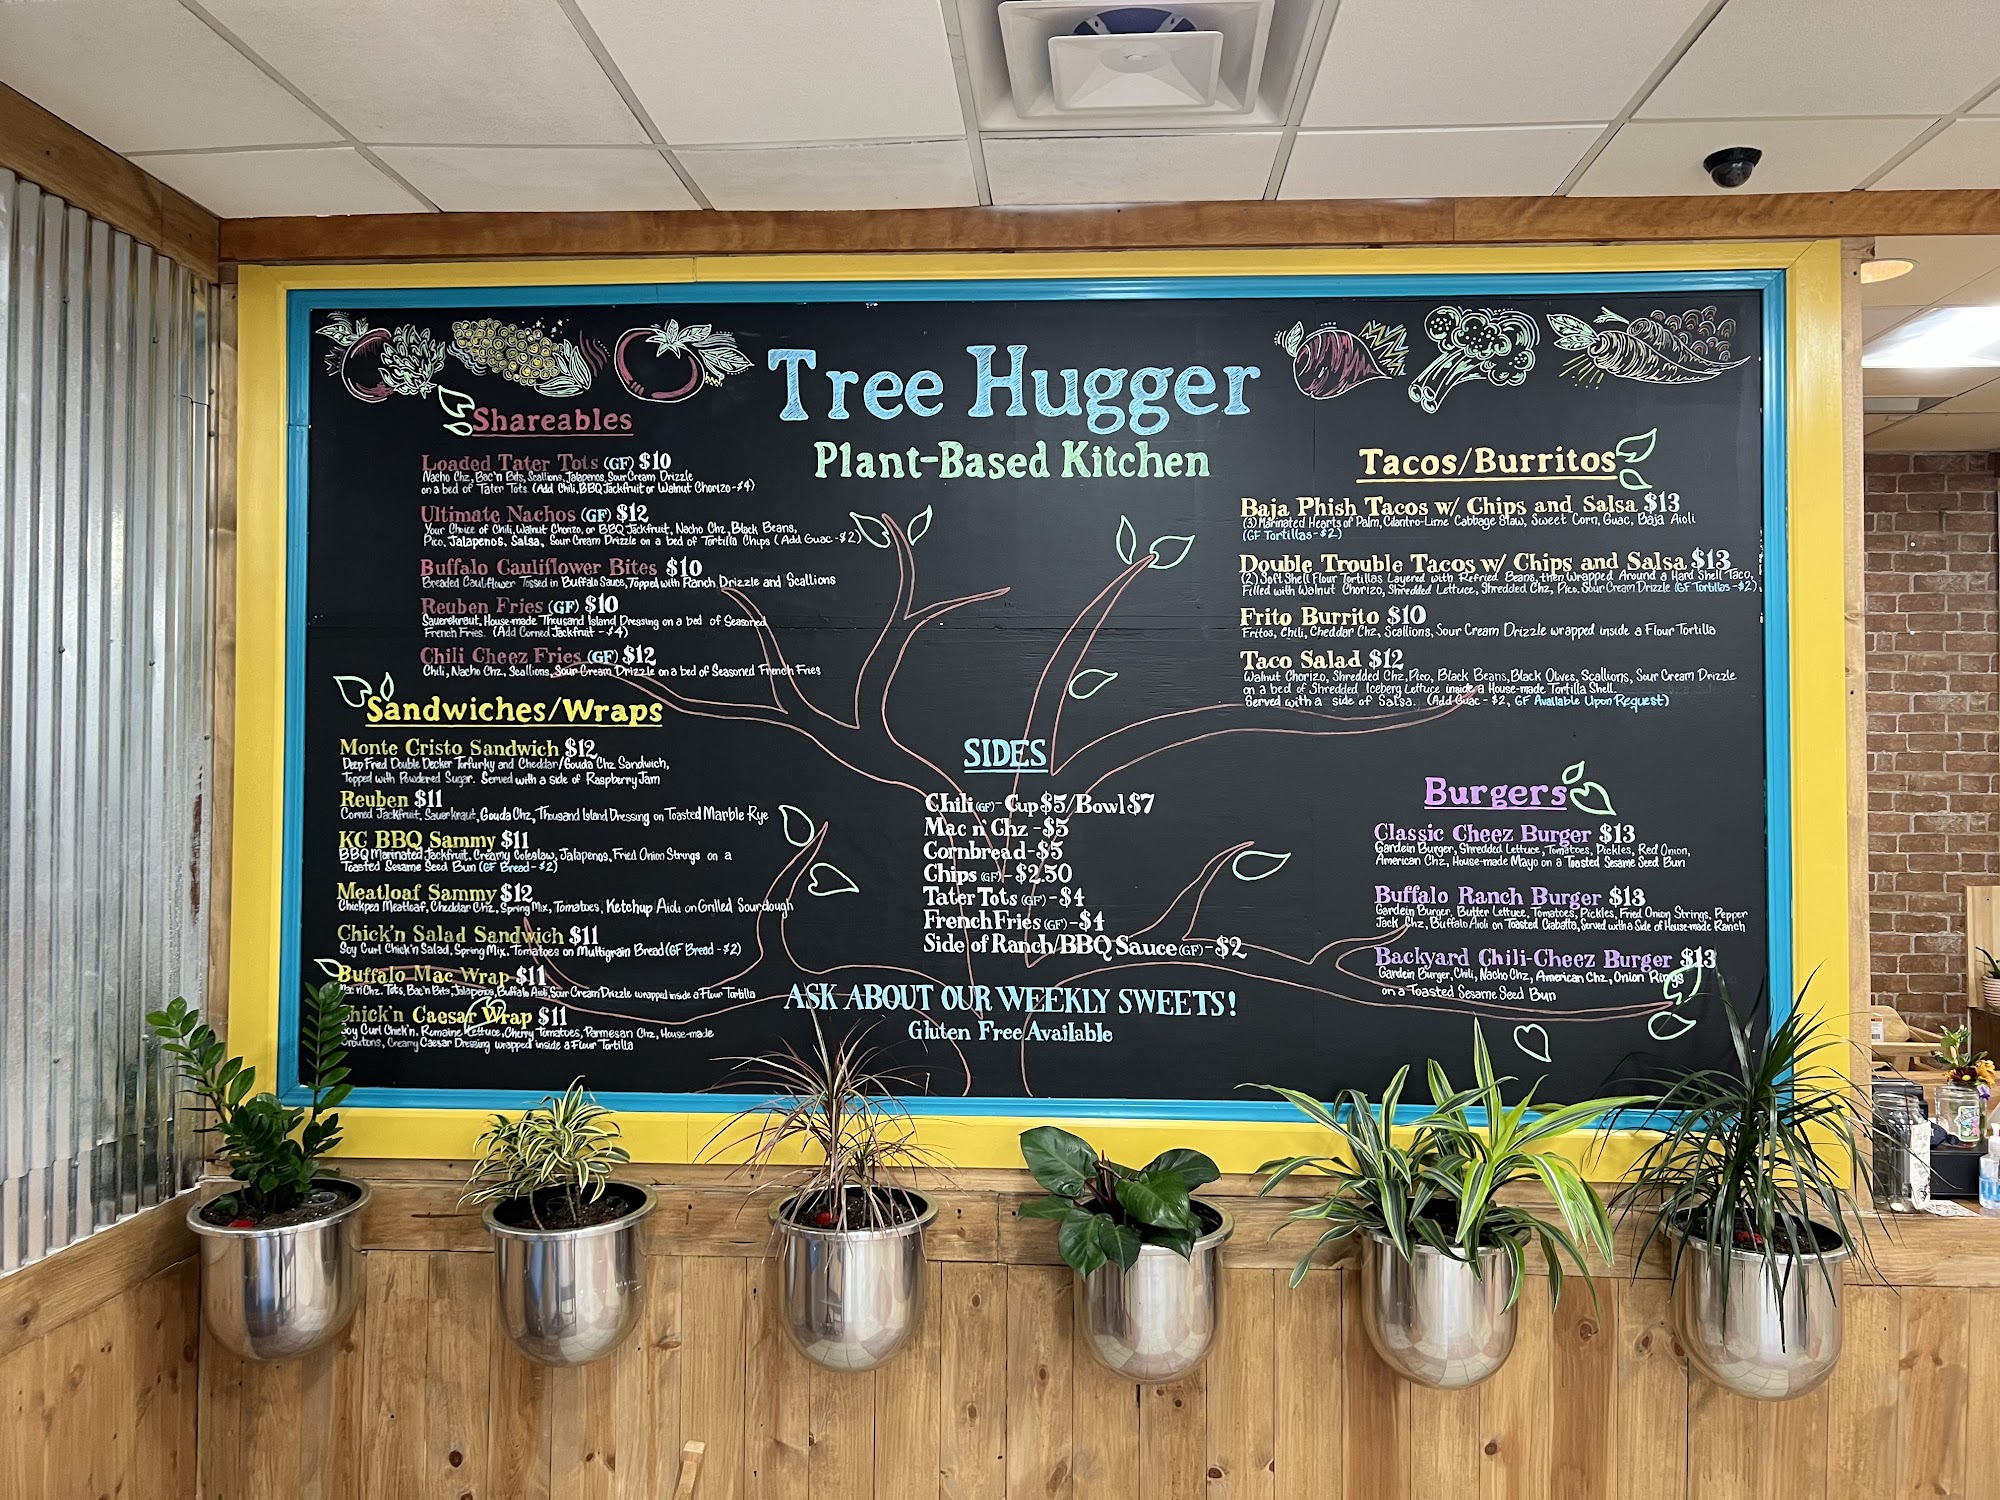 Tree Hugger
Plant-Based Kitchen
Shareables
Loaded Tater Tots (GF) $10
Nacho Chz, Bac'n Bits, Scallions, Jalapenos, Sour Cream Drizzle
on a bed of Tater Tots. (Add Chili, BBQ Jackfruit or Walnut Chorizo -$4)
Ultimate Nachos (GF) $12
Your Choice of Chili, Walnut Chorizo, or BBQ Jackfruit, Nacho Chz, Black Beans,
Pico, Jalapenos, Salsa, Sour Cream Drizzle on a bed of Tortilla Chips (Add Guac -$2)
Buffalo Cauliflower Bites $10
Breaded Cauliflower Tossed in Buffalo Sauce, Topped with Ranch Drizzle and Scallions
Reuben Fries (GF) $10
Sauerkraut, House-made Thousand Island Dressing on a bed of Seasoned
French Fries. (Add Corned Jackfruit - $4)
Chili Cheez Fries (GF) $12
Chili, Nacho Chz, Scallions, Sour Cream Drizzle on a bed of Seasoned French Fries
Sandwiches/Wraps
Monte Cristo Sandwich $12
Deep Fried Double Decker Torfurky and Cheddar/Gouda Chz Sandwich,
Topped with Powdered Sugar. Served with a side of Raspberry Jam
Reuben $11
Corned Jackfruit, Sauerkraut, Gouda Chz, Thousand Island Dressing on Toasted Marble Rye
KC BBQ Sammy $11
BBQ Marinated Jackfruit, Creamy Coleslaw, Jalapenos, Fried Onion Strings on a
Toasted Sesame Seed Bun (GF Bread -$2)
Meatloaf Sammy $12
Chickpea Meatloaf, Cheddar Chz, Spring Mix, Tomatoes, Ketchup Aioli on Grilled Sourdough
Chick'n Salad Sandwich $11
Soy Curl Chick'n Salad, Spring Mix, Tomatoes on Multigrain Bread (GF Bread - $2)
Buffalo Mac Wrap $11
Mac n' Chz. Tots, Bac'n Bits, Jalapenos, Buffalo Aioli, Sour Cream Drizzle wrapped inside a Flour Tortilla
Chick'n Caesar Wrap $11
Soy Curl Chick'n, Romaine Lettuce, Cherry Tomatoes, Parmesan Chz, House-made
Croutons, Creamy Caesar Dressing wrapped inside a Flour Tortilla
SIDES
Chili (GF) - Cup $5/Bowl $7
Mac n' Chz -$5
Cornbread -$5
Chips (GF) - $2.50
Tater Tots (GF) -$4
French Fries (GF) -$4
Side of Ranch/BBQ Sauce (GF) - $2
ASK ABOUT OUR WEEKLY SWEETS!
Gluten Free Available
Tacos/Burritos
Baja Phish Tacos w/ Chips and Salsa $13
(3) Marinated Hearts of Palm, Cilantro-Lime Cabbage Slaw, Sweet Corn, Guac, Baja Aioli
(GF Tortillas -$2)
Double Trouble Tacos w/ Chips and Salsa $13
(2) Soft Shell Flour Tortillas Layered with Refried Beans, then Wrapped Around a Hard Shell Taco,
Filled with Walnut Chorizo, Shredded Lettuce, Shredded Chz, Pico, Sour Cream Drizzle (GF Tortillas -$2)
Frito Burrito $10
Fritos, Chili, Cheddar Chz, Scallions, Sour Cream Drizzle wrapped inside a Flour Tortilla
Taco Salad $12
Walnut Chorizo, Shredded Chz, Pico, Black Beans, Black Olives, Scallions, Sour Cream Drizzle
on a bed of Shredded Iceberg Lettuce inside a House-made Tortilla Shell.
Served with a side of Salsa. (Add Guac - $2, GF Available Upon Request)
Burgers
Classic Cheez Burger $13
Gardein Burger, Shredded Lettuce, Tomatoes, Pickles, Red Onion,
American Chz, House-made Mayo on a Toasted Sesame Seed Bun
Buffalo Ranch Burger $13
Gardein Burger, Butter Lettuce, Tomatoes, Pickles, Fried Onion Strings, Pepper
Jack Chz, Buffalo Aioli on Toasted Ciabatta, Served with a Side of House-made Ranch
Backyard Chili-Cheez Burger $13
Gardein Burger, Chili, Nacho Chz, American Chz, Onion Rings
on a Toasted Sesame Seed Bun